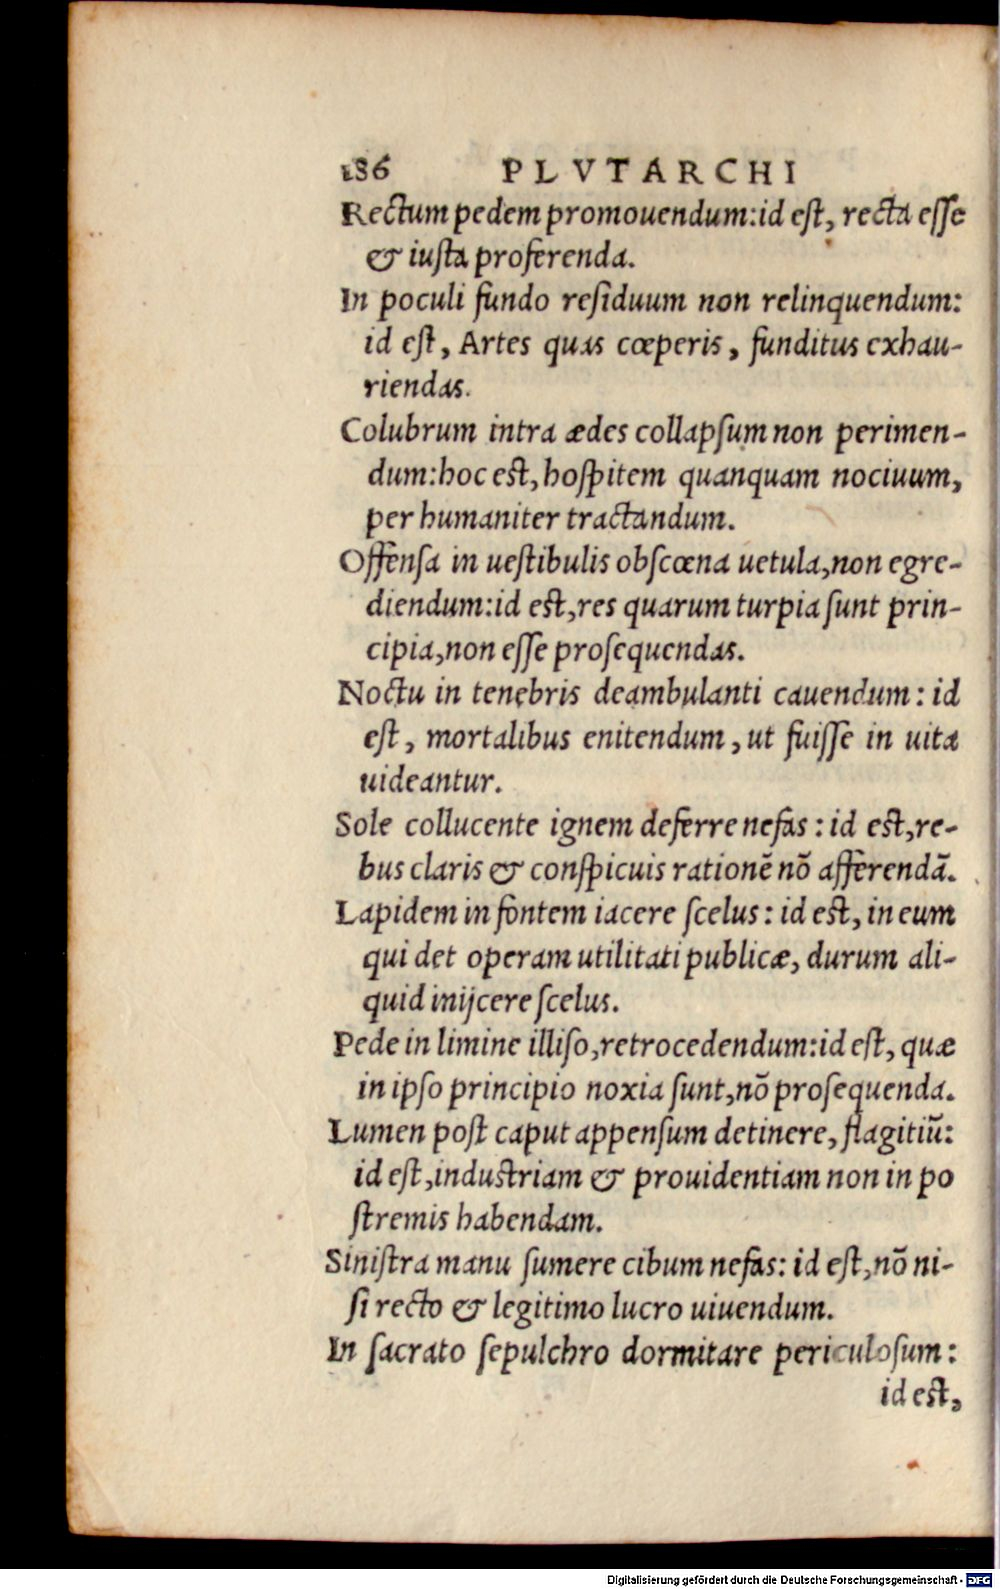 186 PLVTARCHI
Rectum pedem promouendum:id eſt, recta eſſe
& iuſta proferenda.
In poculi fundo reſiduum non relinquendum:
id eſt, Artes quas cœperis, funditus exhau-
riendas.
Colubrum intra ædes collapſum non perimen-
dum:hoc eſt, hoſpitem quanquam nociuum,
per humaniter tractandum.
Offenſa in ueſtibulis obſcœna uetula,non egre-
diendum:id eſt,res quarum turpia ſunt prin-
cipia,non eſſe proſequendas.
Noctu in tenebris deambulanti cauendum: id
eſt, mortalibus enitendum, ut fuiſſe in uita
uideantur.
Sole collucente ignem deferre nefas: id eſt,re-
bus claris & conſpicuis rationē nō afferendā.
Lapidem in fontem iacere ſcelus: id eſt, in eum
qui det operam utilitati publicæ, durum ali-
quid inijcere ſcelus.
Pede in limine illiſo,retrocedendum:id eſt, quæ
in ipſo principio noxia ſunt,nō proſequenda.
Lumen poſt caput appenſum detinere, flagitiū:
id eſt,induſtriam & prouidentiam non in po
ſtremis habendam.
Siniſtra manu ſumere cibum nefas: id eſt,nō ni-
ſi recto & legitimo lucro uiuendum.
In ſacrato ſepulchro dormitare periculoſum:
id eſt,
Digitalisierung gefördert durch die Deutsche Forschungsgemeinschaft - DFG